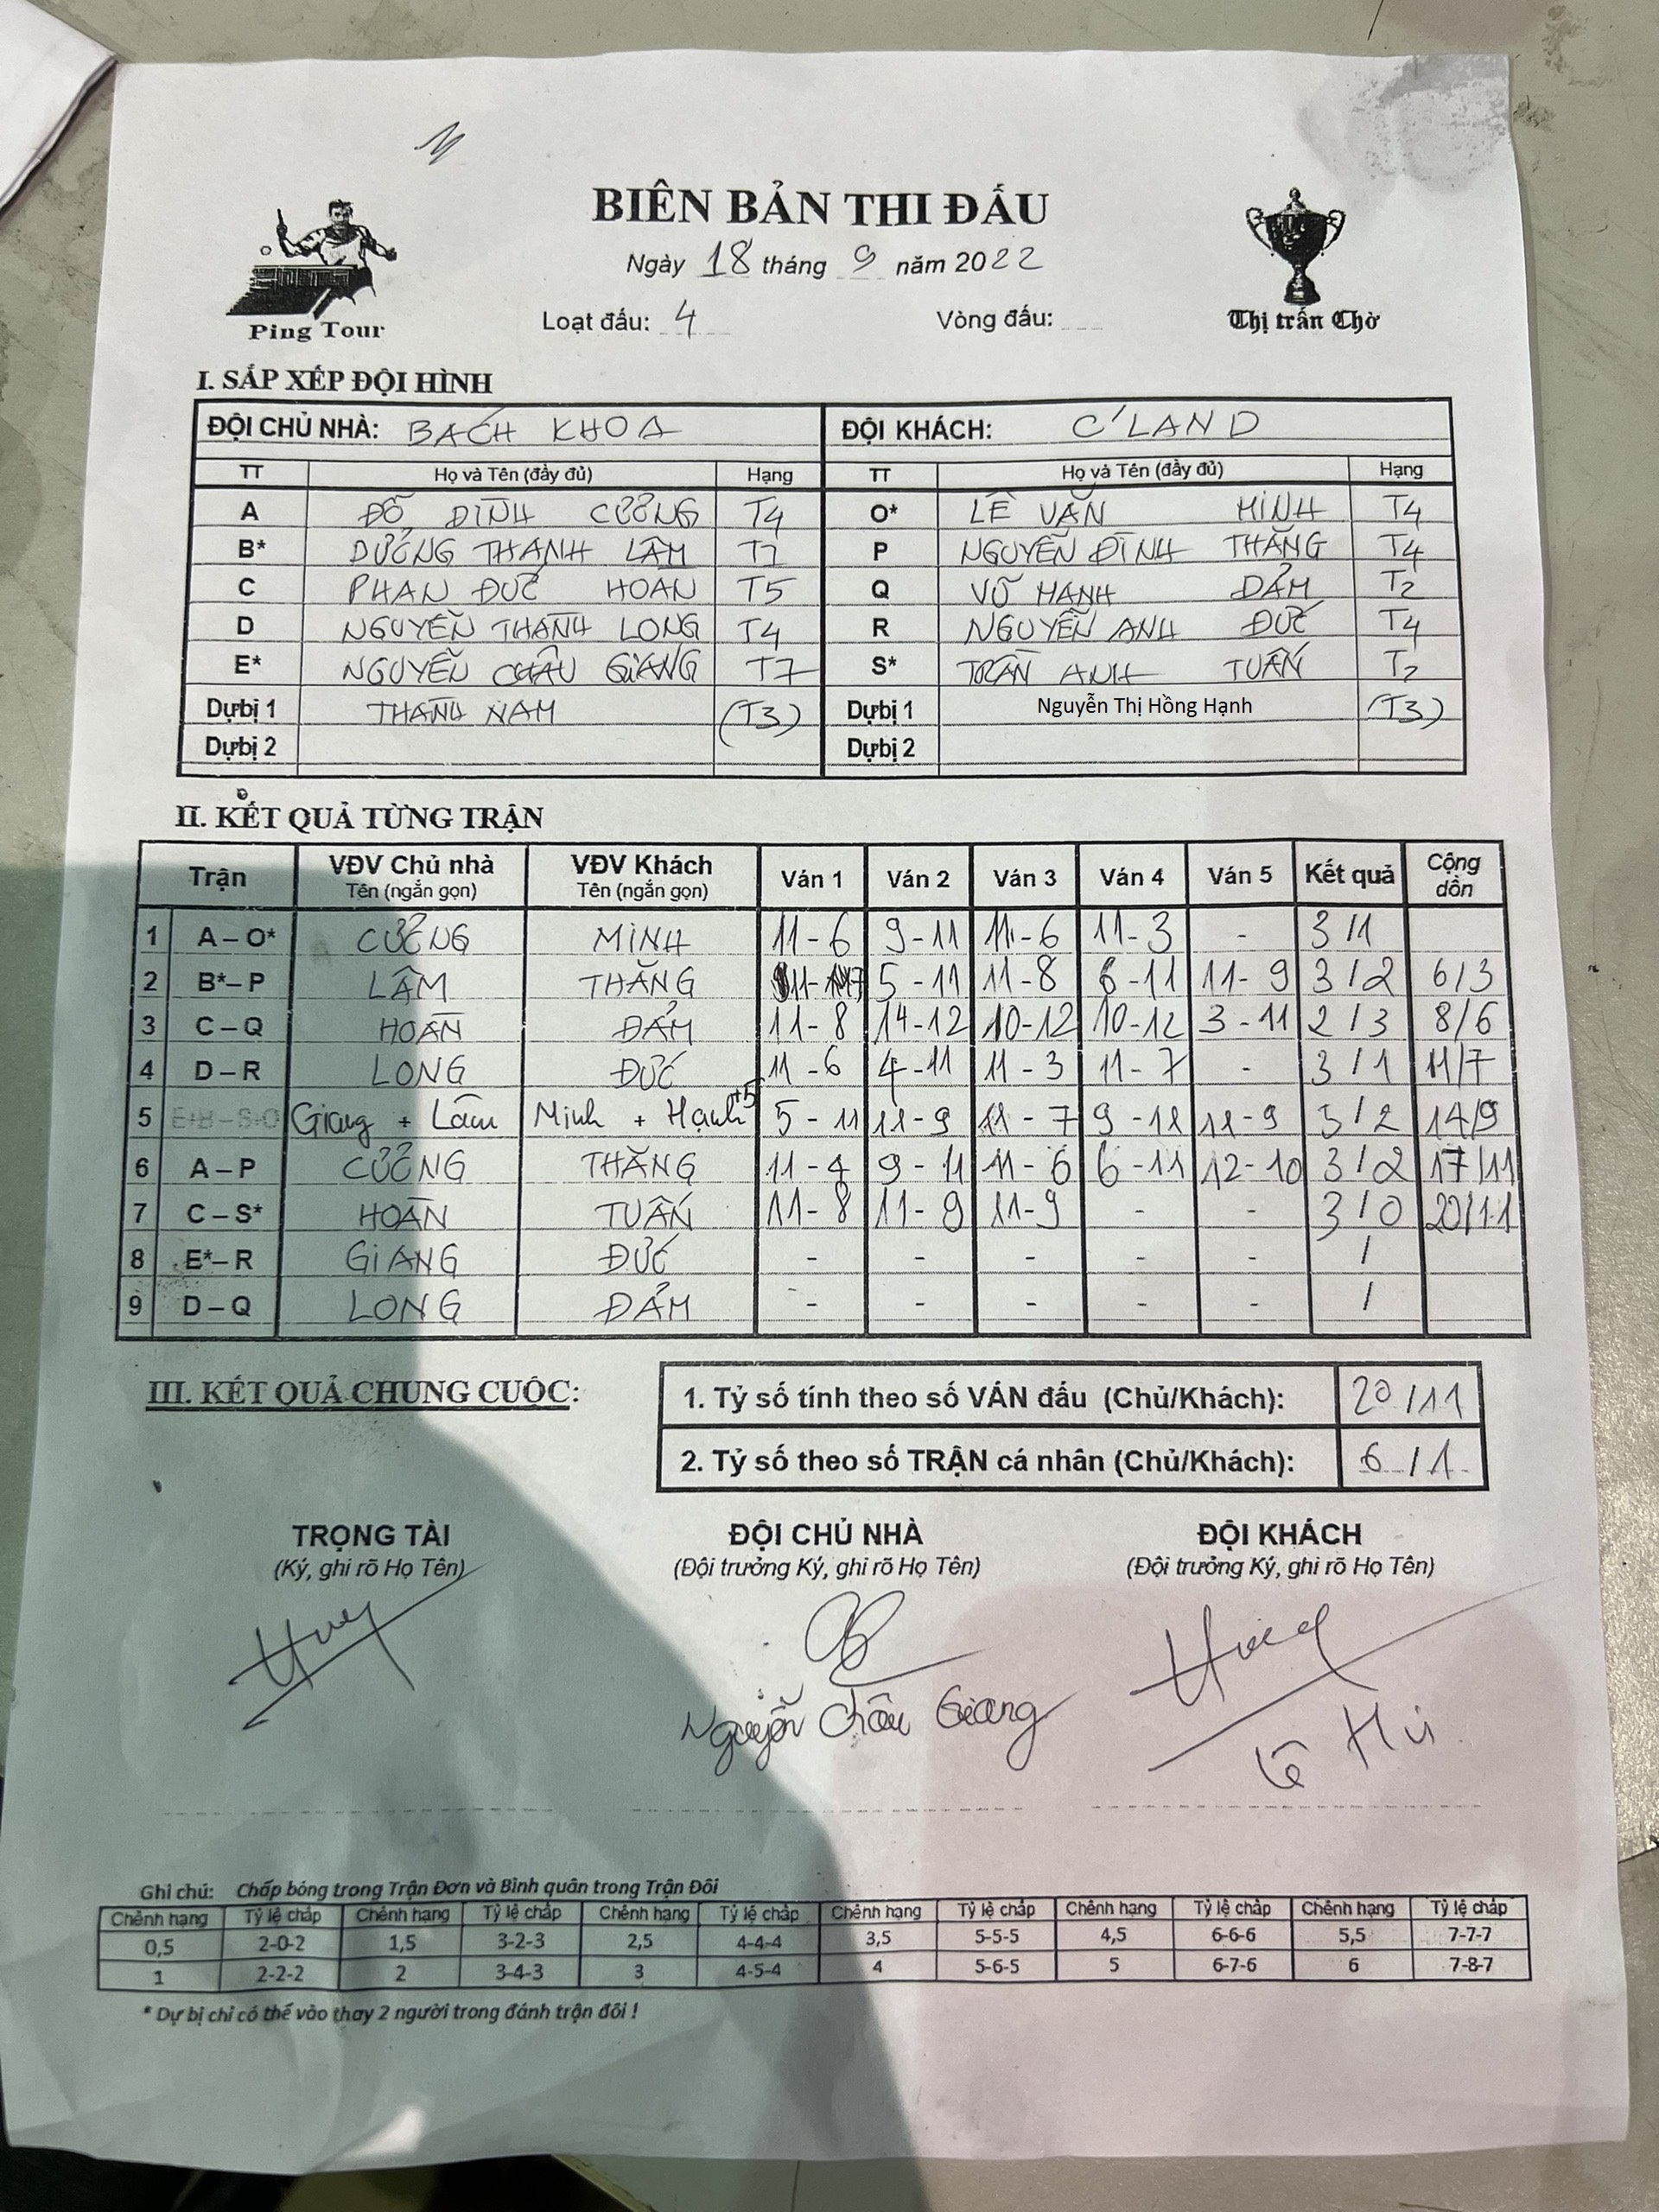 BIÊN BẢN THI ĐẤU
Ngày 18 tháng 9 năm 2022
Loạt đấu: 4 Vòng đấu:
Ping Tour
Thị trấn Chờ
I. SẮP XẾP ĐỘI HÌNH
ĐỘI CHỦ NHÀ: BÁCH KHOA ĐỘI KHÁCH: C'LAND
TT Họ và Tên (đầy đủ) Hạng TT Họ và Tên (đầy đủ) Hạng
A ĐỖ ĐÌNH CƯỜNG T4 O* LÊ VĂN MINH T4
B* DƯƠNG THANH LÂM T7 P NGUYỄN ĐÌNH THĂNG T4
C PHAN ĐỨC HOAN T5 Q VŨ MẠNH ĐẢM T2
D NGUYỄN THÀNH LONG T4 R NGUYỄN ANH ĐỨC T4
E* NGUYỄN CHÂU GIANG T7 S* TRẦN ANH TUẤN T2
Dự bị 1 THÀNH NAM (T3) Dự bị 1 Nguyễn Thị Hồng Hạnh (T3)
Dự bị 2 Dự bị 2
II. KẾT QUẢ TỪNG TRẬN
Trận VĐV Chủ nhà VĐV Khách Ván 1 Ván 2 Ván 3 Ván 4 Ván 5 Kết quả Cộng dồn
Tên (ngắn gọn) Tên (ngắn gọn)
1 A – O* CƯỜNG MINH 11 - 6 9 - 11 11 - 6 11 - 3 - 3 / 1
2 B* – P LÂM THĂNG 5 - 11 11 - 8 6 - 11 11 - 9 3 / 2 6 / 3
3 C – Q HOÀN ĐẢM 11 - 8 14 - 12 10 - 12 10 - 12 3 - 11 2 / 3 8 / 6
4 D – R LONG ĐỨC 11 - 6 4 - 11 11 - 3 11 - 7 - 3 / 1 11 / 7
5 E+B – S+O Giang + Lâm Minh + Hạnh +5 5 - 11 11 - 9 11 - 7 9 - 11 11 - 9 3 / 2 14 / 9
6 A – P CƯỜNG THĂNG 11 - 4 9 - 11 11 - 6 6 - 11 12 - 10 3 / 2 17 / 11
7 C – S* HOÀN TUẤN 11 - 8 11 - 9 11 - 9 - - 3 / 0 20 / 11
8 E* – R GIANG ĐỨC - - - - - /
9 D – Q LONG ĐẢM - - - - - /
III. KẾT QUẢ CHUNG CUỘC:
1. Tỷ số tính theo số VÁN đấu (Chủ/Khách): 20 / 11
2. Tỷ số theo số TRẬN cá nhân (Chủ/Khách): 6 / 1
TRỌNG TÀI ĐỘI CHỦ NHÀ ĐỘI KHÁCH
(Ký, ghi rõ Họ Tên) (Đội trưởng Ký, ghi rõ Họ Tên) (Đội trưởng Ký, ghi rõ Họ Tên)
Huy
Nguyễn Châu Giang
Ghi chú: Chấp bóng trong Trận Đơn và Bình quân trong Trận Đôi
Chênh hạng Tỷ lệ chấp Chênh hạng Tỷ lệ chấp Chênh hạng Tỷ lệ chấp Chênh hạng Tỷ lệ chấp Chênh hạng Tỷ lệ chấp Chênh hạng Tỷ lệ chấp
0,5 2-0-2 1,5 3-2-3 2,5 4-4-4 3,5 5-5-5 4,5 6-6-6 5,5 7-7-7
1 2-2-2 2 3-4-3 3 4-5-4 4 5-6-5 5 6-7-6 6 7-8-7
* Dự bị chỉ có thể vào thay 2 người trong đánh trận đôi !